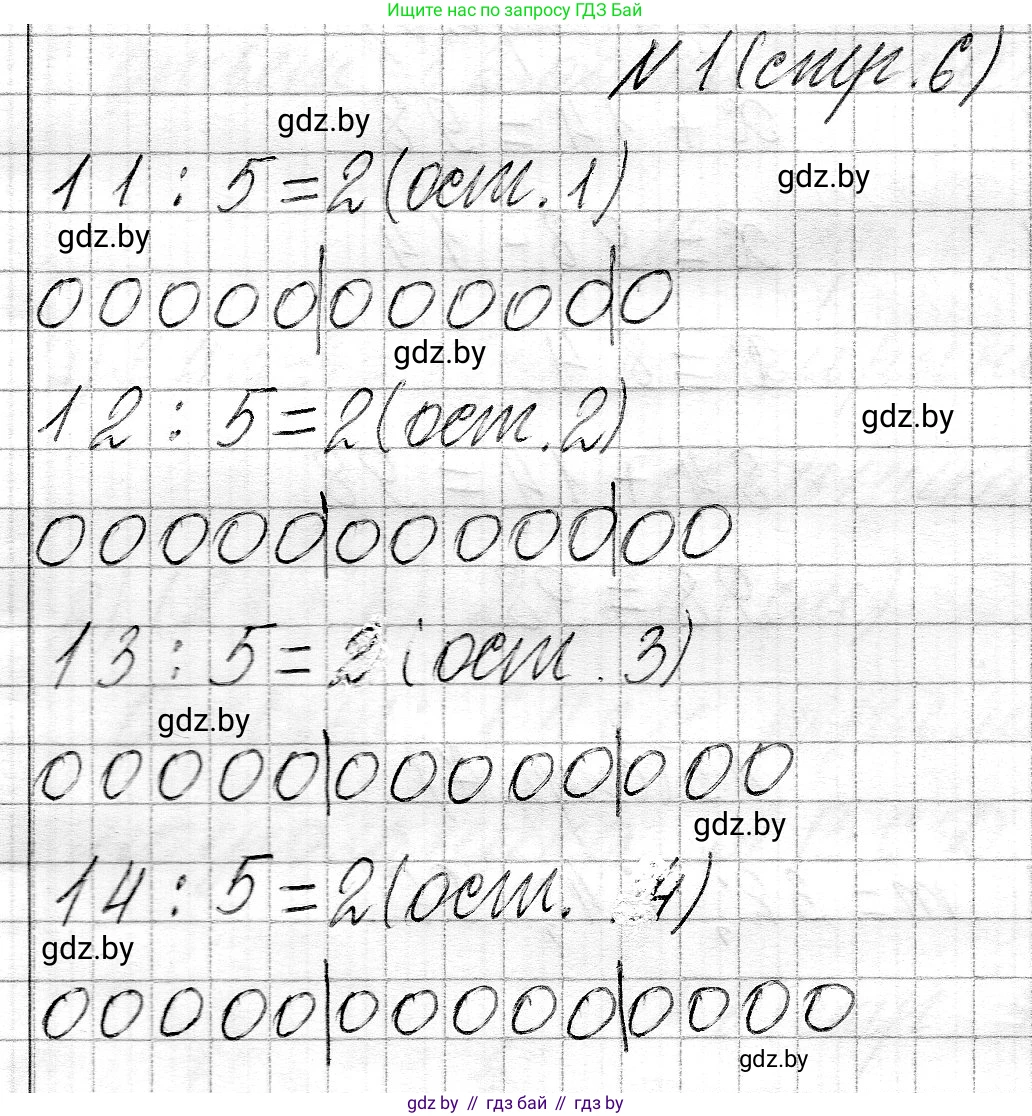 Ищите нас по запросу ГДЗ Бай
N 1 (стр. 6)
gdz.by
11 : 5 = 2 (ост. 1)
gdz.by
gdz.by
00000|00000|0
gdz.by
12 : 5 = 2 (ост. 2)
gdz.by
00000|00000|00
13 : 5 = 2 (ост. 3)
gdz.by
00000|00000|000
gdz.by
14 : 5 = 2 (ост. 4)
gdz.by
00000|00000|0000
gdz.by
gdz by // гдз бай // гдз by